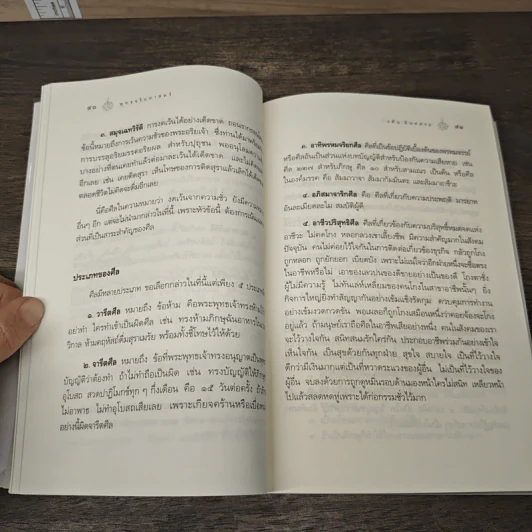 ๓. สมุจเฉทวิรัติ การงดเว้นได้อย่างเด็ดขาด
ข้อนี้หมายถึงการเว้นความชั่วของพระอริยเจ้า ซึ่งท่านได้มา
การบรรลุอริยมรรคอริยผล สำหรับปุถุชน พออนุโลม
บางอย่างที่ตนเคยทำแล้วต่อมาละเว้นได้เด็ดขาด และไม่
อีกเลย เช่น เคยดื่มสุรา เห็นโทษของการดื่มสุราแล้วเลิกได้
ตลอดชีวิตไม่คิดจะดื่มอีกเลย
นี่คือศีลในความหมายว่า งดเว้นจากความชั่ว ยังมีความ
อื่นๆ อีก แต่จะไม่นำมากล่าวในที่นี้ เพราะหัวข้อนี้ ต้องการเน้น
ส่วนที่เป็นสาระสำคัญของศีล
ประเภทของศีล
ศีลมีหลายประเภท ขอเลือกกล่าวในที่นี้แต่เพียง ๕ ประเภท
๑. วารีตศีล หมายถึง ข้อห้าม คือพระพุทธเจ้าทรงห้าม
อย่าทำ ใครทำเข้าเป็นผิดศีล เช่น ทรงห้ามภิกษุฉันอาหารใน
วิกาล ห้ามคฤหัสถ์ดื่มสุราเมรัย พร้อมทั้งชี้โทษไว้ให้ด้วย
๒. จารีตศีล หมายถึง ข้อที่พระพุทธเจ้าทรงอนุญาต
บัญญัติว่าต้องทำ ถ้าไม่ทำถือเป็นผิด เช่น ทรงบัญญัติให้
อุโบสถ สวดปาฏิโมกข์ทุก ๆ กึ่งเดือน คือ ๑๕ วันต่อครั้ง ถ้า
ไม่อาพาธ ไม่ทำอุโบสถเสียเลย เพราะเกียจคร้านหรือเบื่อหน่าย
อย่างนี้ผิดจารีตศีล
๓. อาทิพรหมจริยกศีล ศีลที่เป็นข้อปฏิบัติเบื้องต้นของพรหมจรรย์
หรือศีลอันเป็นส่วนแห่งบทบัญญัติสำหรับป้องกันความเสียหาย เช่น
ศีล ๒๒๗ สำหรับภิกษุ ศีล ๑๐ สำหรับสามเณร เป็นต้น หรือศีล
ในองค์มรรค คือ สัมมาวาจา สัมมากัมมันตะ และสัมมาอาชีวะ
๔. อภิสมาจาริกศีล คือ ศีลที่เกี่ยวกับความประพฤติ มารยาท
อันละเมียดละไม สมบัติผู้ดี
๕. อาชีวปาริสุทธิศีล ศีลที่เกี่ยวข้องกับความบริสุทธิ์หมดจดแห่ง
อาชีวะ ไม่คดโกง หลอกลวงเขาเลี้ยงชีพ มีความสำคัญมากในสังคม
ปัจจุบัน คนไม่ค่อยไว้ใจกันในการติดต่อเกี่ยวข้องธุรกิจ กลัวถูกโกง
ถูกหลอก ถูกยักยอก เบียดบัง เพราะไม่แน่ใจว่าอีกฝ่ายหนึ่งจะซื่อตรง
ในอาชีพหรือไม่ เอาของเลวปนของดีขายอย่างเป็นของดี โกงตาชั่ง
ผู้ไม่มีความรู้ ไม่ทันเล่ห์เหลี่ยมของคนโกงในสาขาอาชีพนั้นๆ ยิ่ง
กิจการใหญ่ยิ่งทำสัญญากันอย่างเข้มแข็งรัดกุม ควบคุมการทำงาน
อย่างเข้มงวดกวดขัน พอเผลอก็ถูกโกงเสมือนหนึ่งว่าคอยจ้องจะโกง
อยู่แล้ว ถ้ามนุษย์เราถือศีลในอาชีพเสียอย่างหนึ่ง คนในสังคมของเรา
จะไว้วางใจกัน สนิทสนมรักใคร่กัน ประกอบอาชีพร่วมกันอย่างเข้าใจ
เห็นใจกัน เป็นสุขด้วยกันทุกฝ่าย สุขใจ สบายใจ เป็นที่ไว้วางใจ
ดีกว่ามีเงินมากแต่เป็นที่หวาดระแวงของผู้อื่น ไม่เป็นที่ไว้วางใจของ
ผู้อื่น จบลงด้วยการถูกดูหมิ่นรอบด้านมองหน้าใครไม่สนิท เหลียวหน้า
ไปแล้วสลดหดหู่เพราะได้ก่อกรรมชั่วไว้มาก